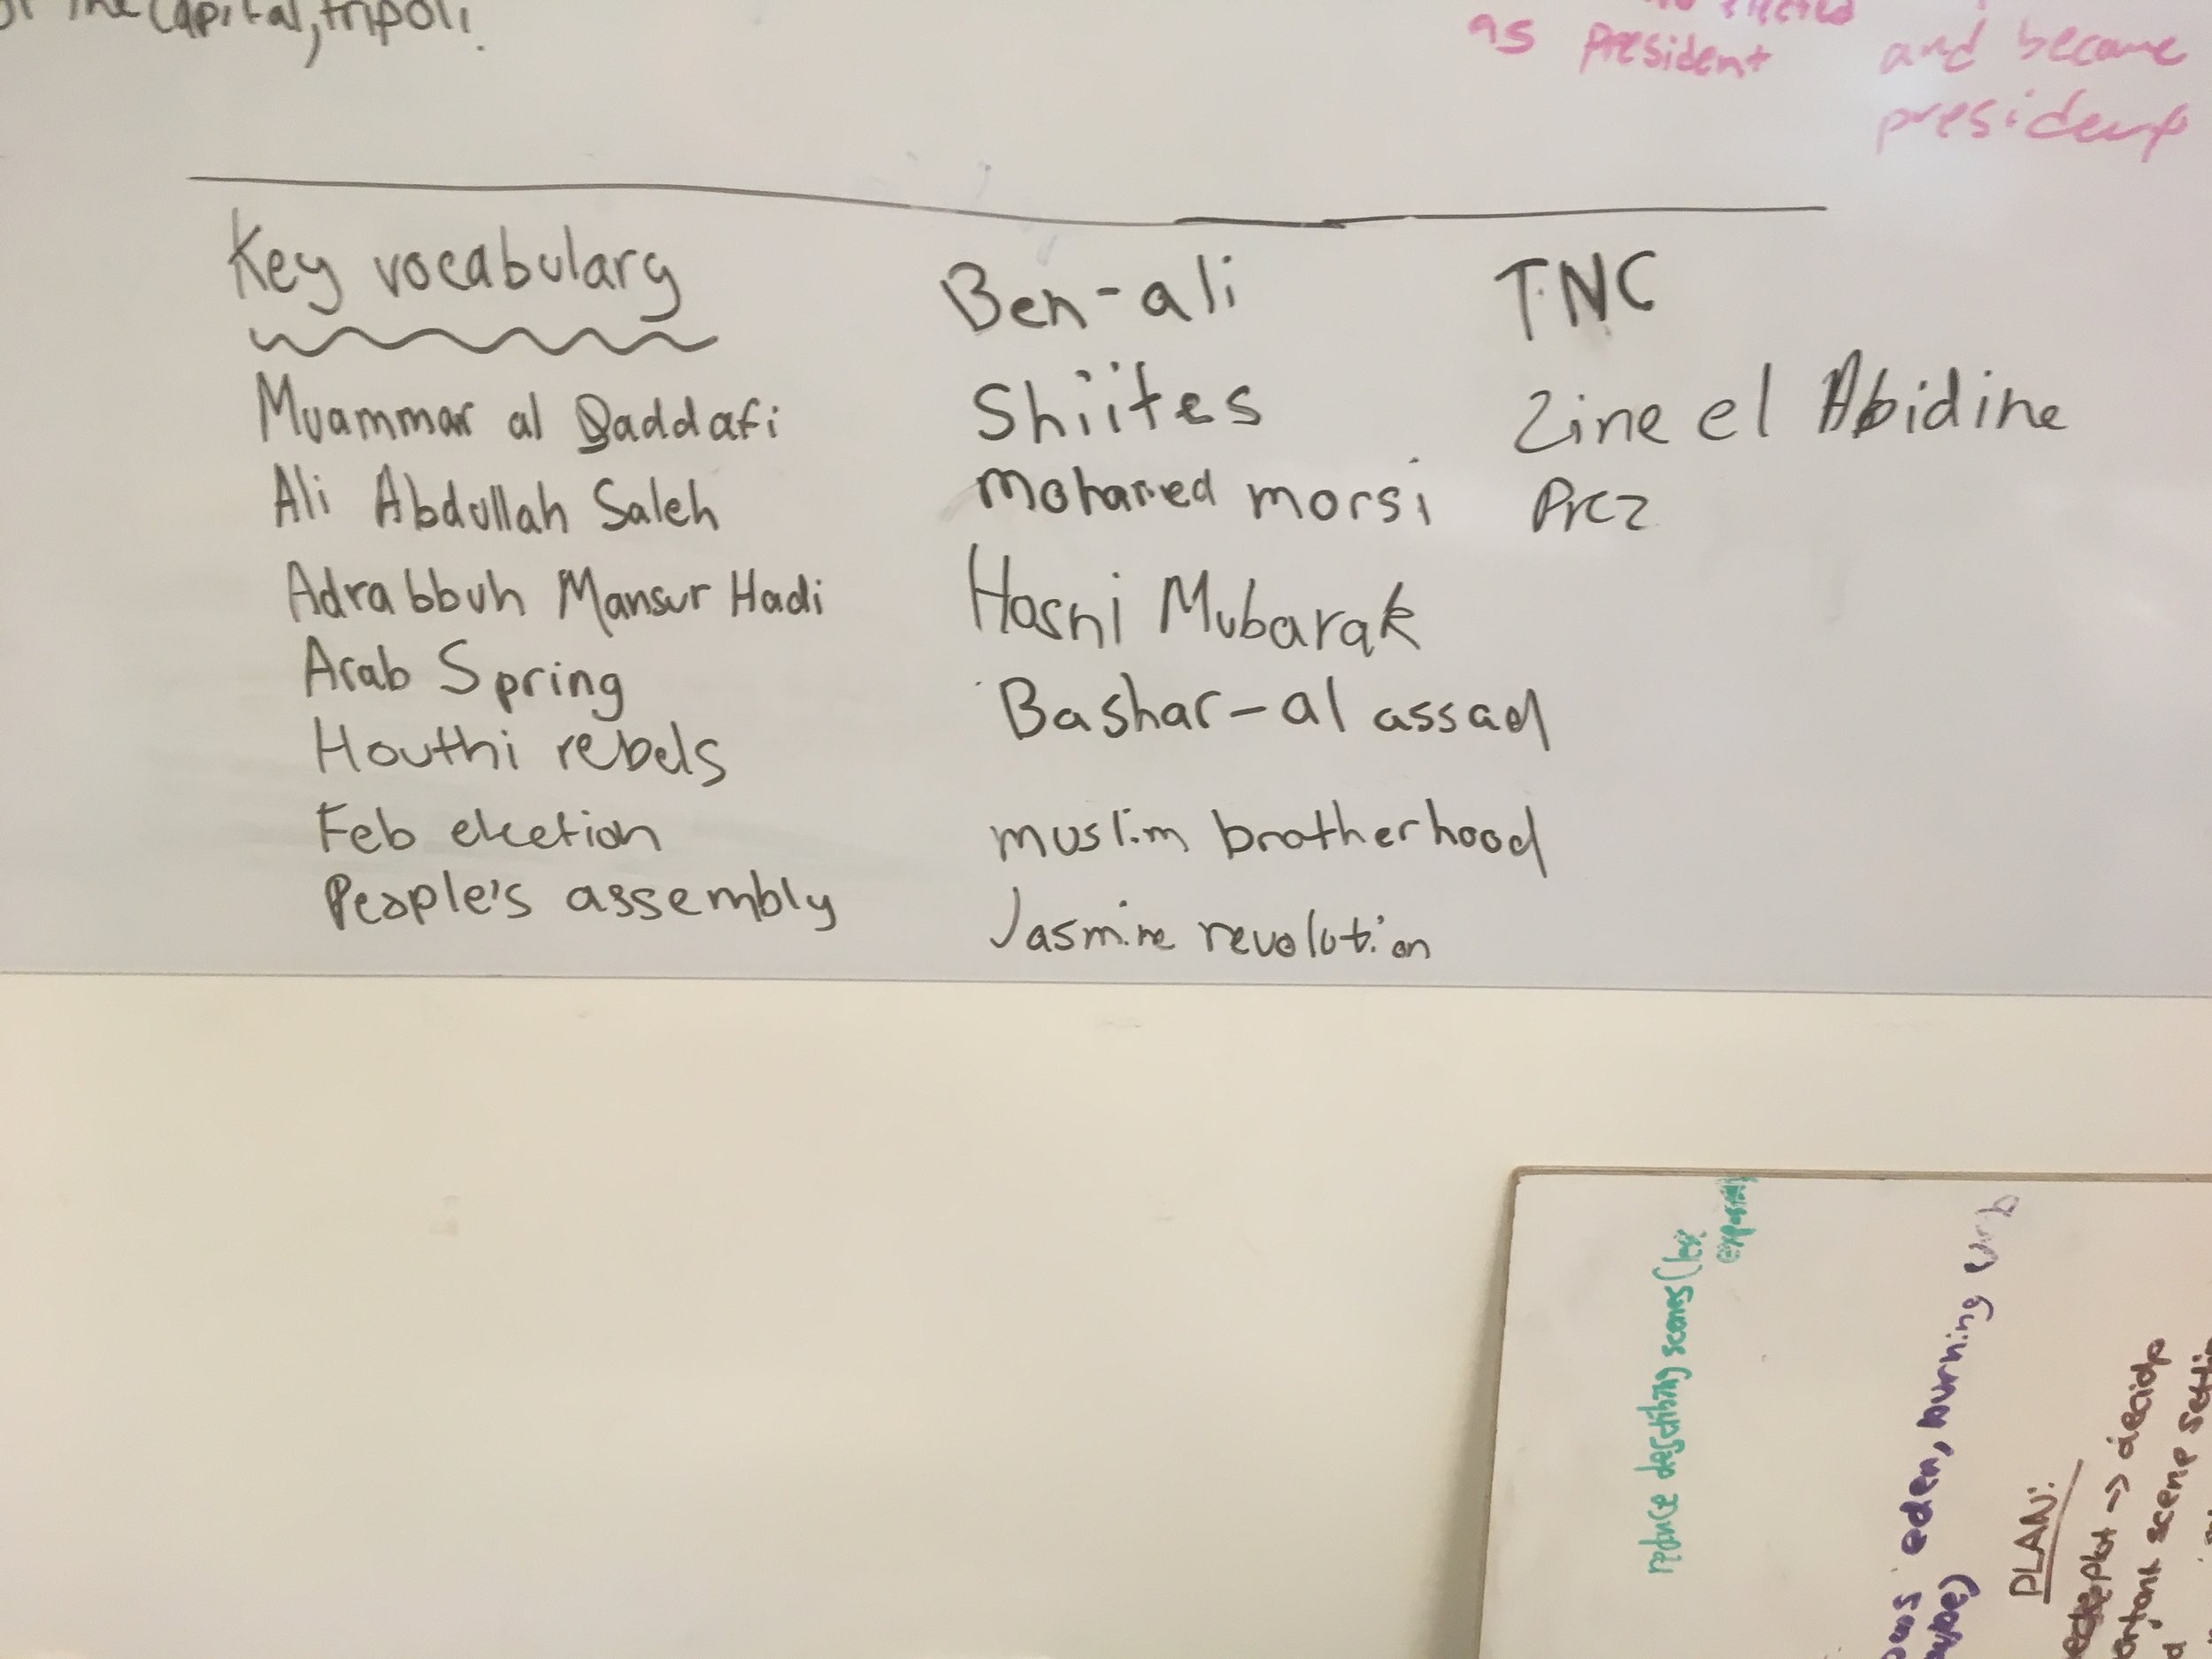 the capital, tripoli.
as president
and became
president
Key vocabulary
Muammar al Qaddafi
Ali Abdullah Saleh
Adrabbuh Mansur Hadi
Arab Spring
Houthi rebels
Feb election
People's assembly
Ben-ali
Shiites
Mohamed morsi
Hosni Mubarak
Bashar-al assad
muslim brotherhood
Jasmine revolution
TNC
Zine el Abidine
Prez
reduce describing scenes (less
eden, burning
PLAN:
→ decide
scene